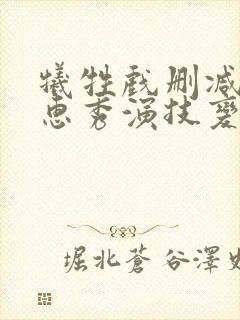 犧牲戲刪減
惠秀演技變
堀北蒼谷澤如